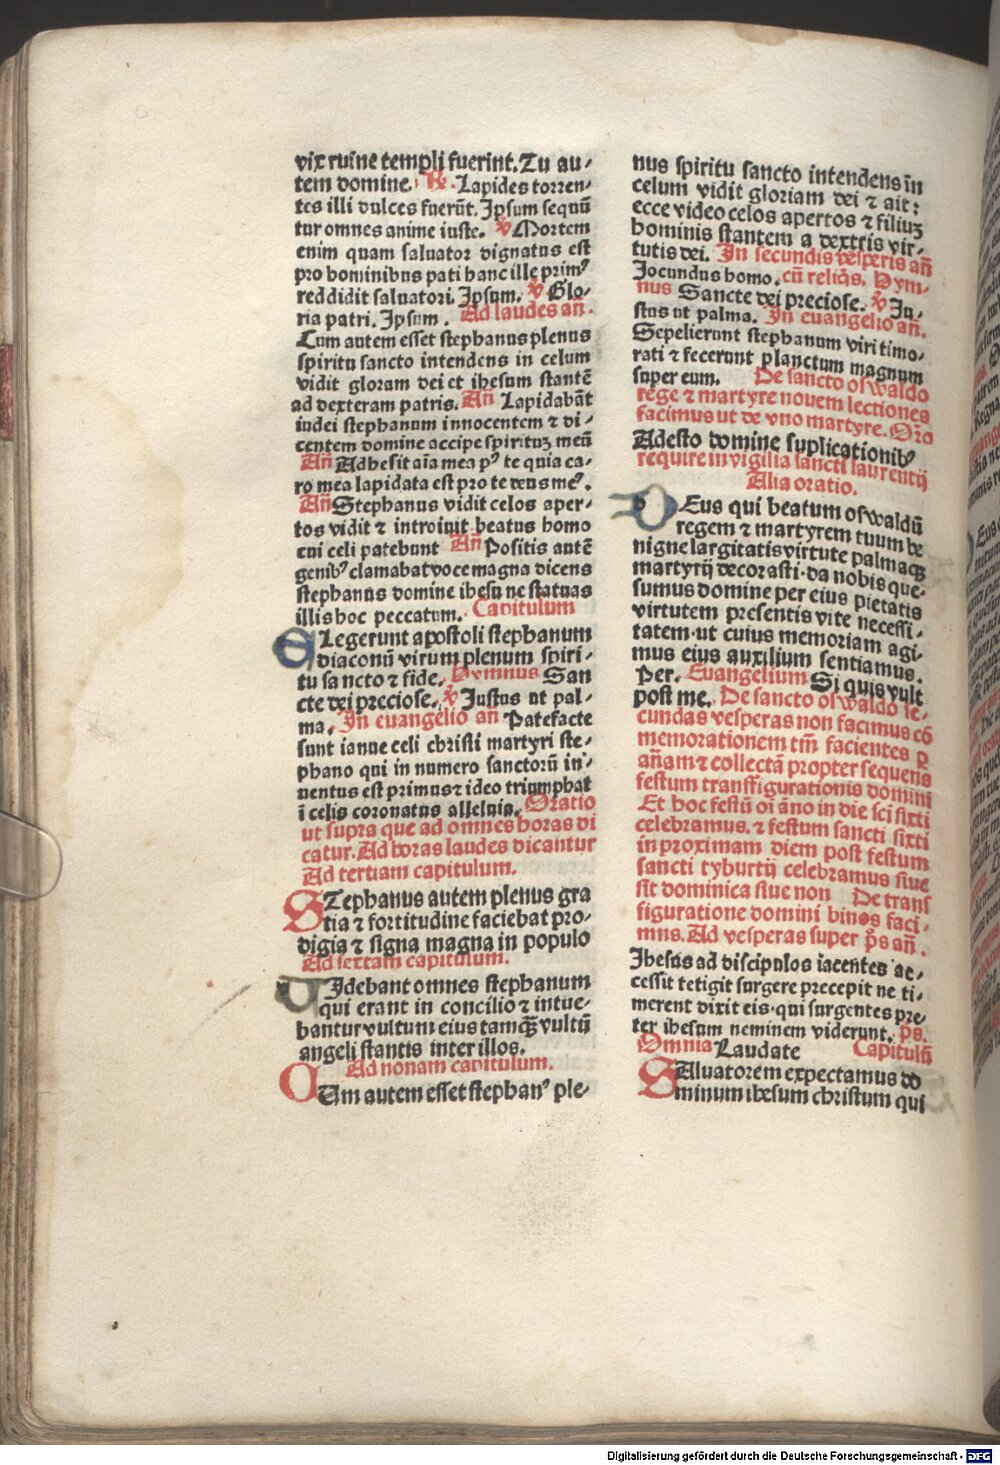 vix ruine templi fuerint. Tu au⸗
tem domine. ℟. Lapides torren⸗
tes illi dulces fuerūt. Ipsum sequū
tur omnes anime iuste. ℣ Mortem
enim quam saluator dignatus est
pro hominibus pati hanc ille primꝰ
reddidit saluatori. Ipsum. ℣ Glo⸗
ria patri. Ipsum. Ad laudes añ.
Cum autem esset stephanus plenus
spiritu sancto intendens in celum
vidit gloram dei et ihesum stantē
ad dexteram patris. Añ Lapidabāt
iudei stephanum innocentem ⁊ di⸗
centem domine accipe spirituʒ meū
Añ Adhesit aīa mea pꝰ te quia ca⸗
ro mea lapidata est pro te deus meꝰ.
Añ Stephanus vidit celos aper⸗
tos vidit ⁊ introiuit beatus homo
cui celi patebunt Añ Positis autē
genibꝰ clamabat voce magna dicens
stephanus domine ihesu ne statuas
illis hoc peccatum. Capitulum
ELegerunt apostoli stephanum
diaconū virum plenum spiri⸗
tu sancto ⁊ fide. Hymnus San
cte dei preciose. ℣ Justus ut pal⸗
ma. In euangelio añ Patefacte
sunt ianue celi christi martyri ste⸗
phano qui in numero sanctorū in⸗
uentus est primus ⁊ ideo triumphat
ī celis coronatus alleluia. Oratio
ut supra que ad omnes horas di
catur. Ad horas laudes dicantur
Ad tertiam capitulum.
STephanus autem plenus gra
tia ⁊ fortitudine faciebat pro⸗
digia ⁊ signa magna in populo
Ad sextam capitulum.
UIdebant omnes stephanum
qui erant in concilio ⁊ intue⸗
bantur vultum eius tamqꝫ vultū
angeli stantis inter illos.
Ad nonam capitulum.
CUm autem esset stephanꝰ ple⸗
nus spiritu sancto intendens in
celum vidit gloriam dei ⁊ ait:
ecce video celos apertos ⁊ filiuʒ
hominis stantem a dextris vir⸗
tutis dei. In secundis vesperis añ
Jocundus homo. cū reliqs. Hym⸗
nus Sancte dei preciose. ℣ Ju⸗
stus ut palma. In euangelio añ.
Sepelierunt stephanum viri timo⸗
rati ⁊ fecerunt planctum magnum
super eum. De sancto oswaldo
rege ⁊ martyre nouem lectiones
facimus ut de vno martyre. Oro
Adesto domine suplicationibꝰ
require in vigilia sancti laurentij
Alia oratio.
DEus qui beatum oswaldū
regem ⁊ martyrem tuum be
nigne largitatis virtute palmaqꝫ
martyrij decorasti. da nobis que⸗
sumus domine per eius pietatis
virtutem presentis vite necessi⸗
tatem. ut cuius memoriam agi⸗
mus eius auxilium sentiamus.
Per. Euangelium Si quis vult
post me. De sancto oswaldo se⸗
cundas vesperas non facimus cō
memorationem tm̄ facientes ꝑ
añam ⁊ collectā propter sequens
festum transfigurationis domini
Et hoc festū oi āno in die sci sixti
celebramus. ⁊ festum sancti sixti
in proximam diem post festum
sancti tyburtij celebramus siue
sit dominica siue non De trans
figuratione domini binos faci⸗
mus. Ad vesperas super p̄s añ.
Ihesus ad discipulos iacentes ac⸗
cessit tetigit surgere precepit ne ti⸗
merent dixit eis. qui surgentes pre⸗
ter ihesum neminem viderunt. ps.
Omnia Laudate Capitulū
SAluatorem expectamus do
minum ihesum christum qui
Digitalisierung gefördert durch die Deutsche Forschungsgemeinschaft - DFG